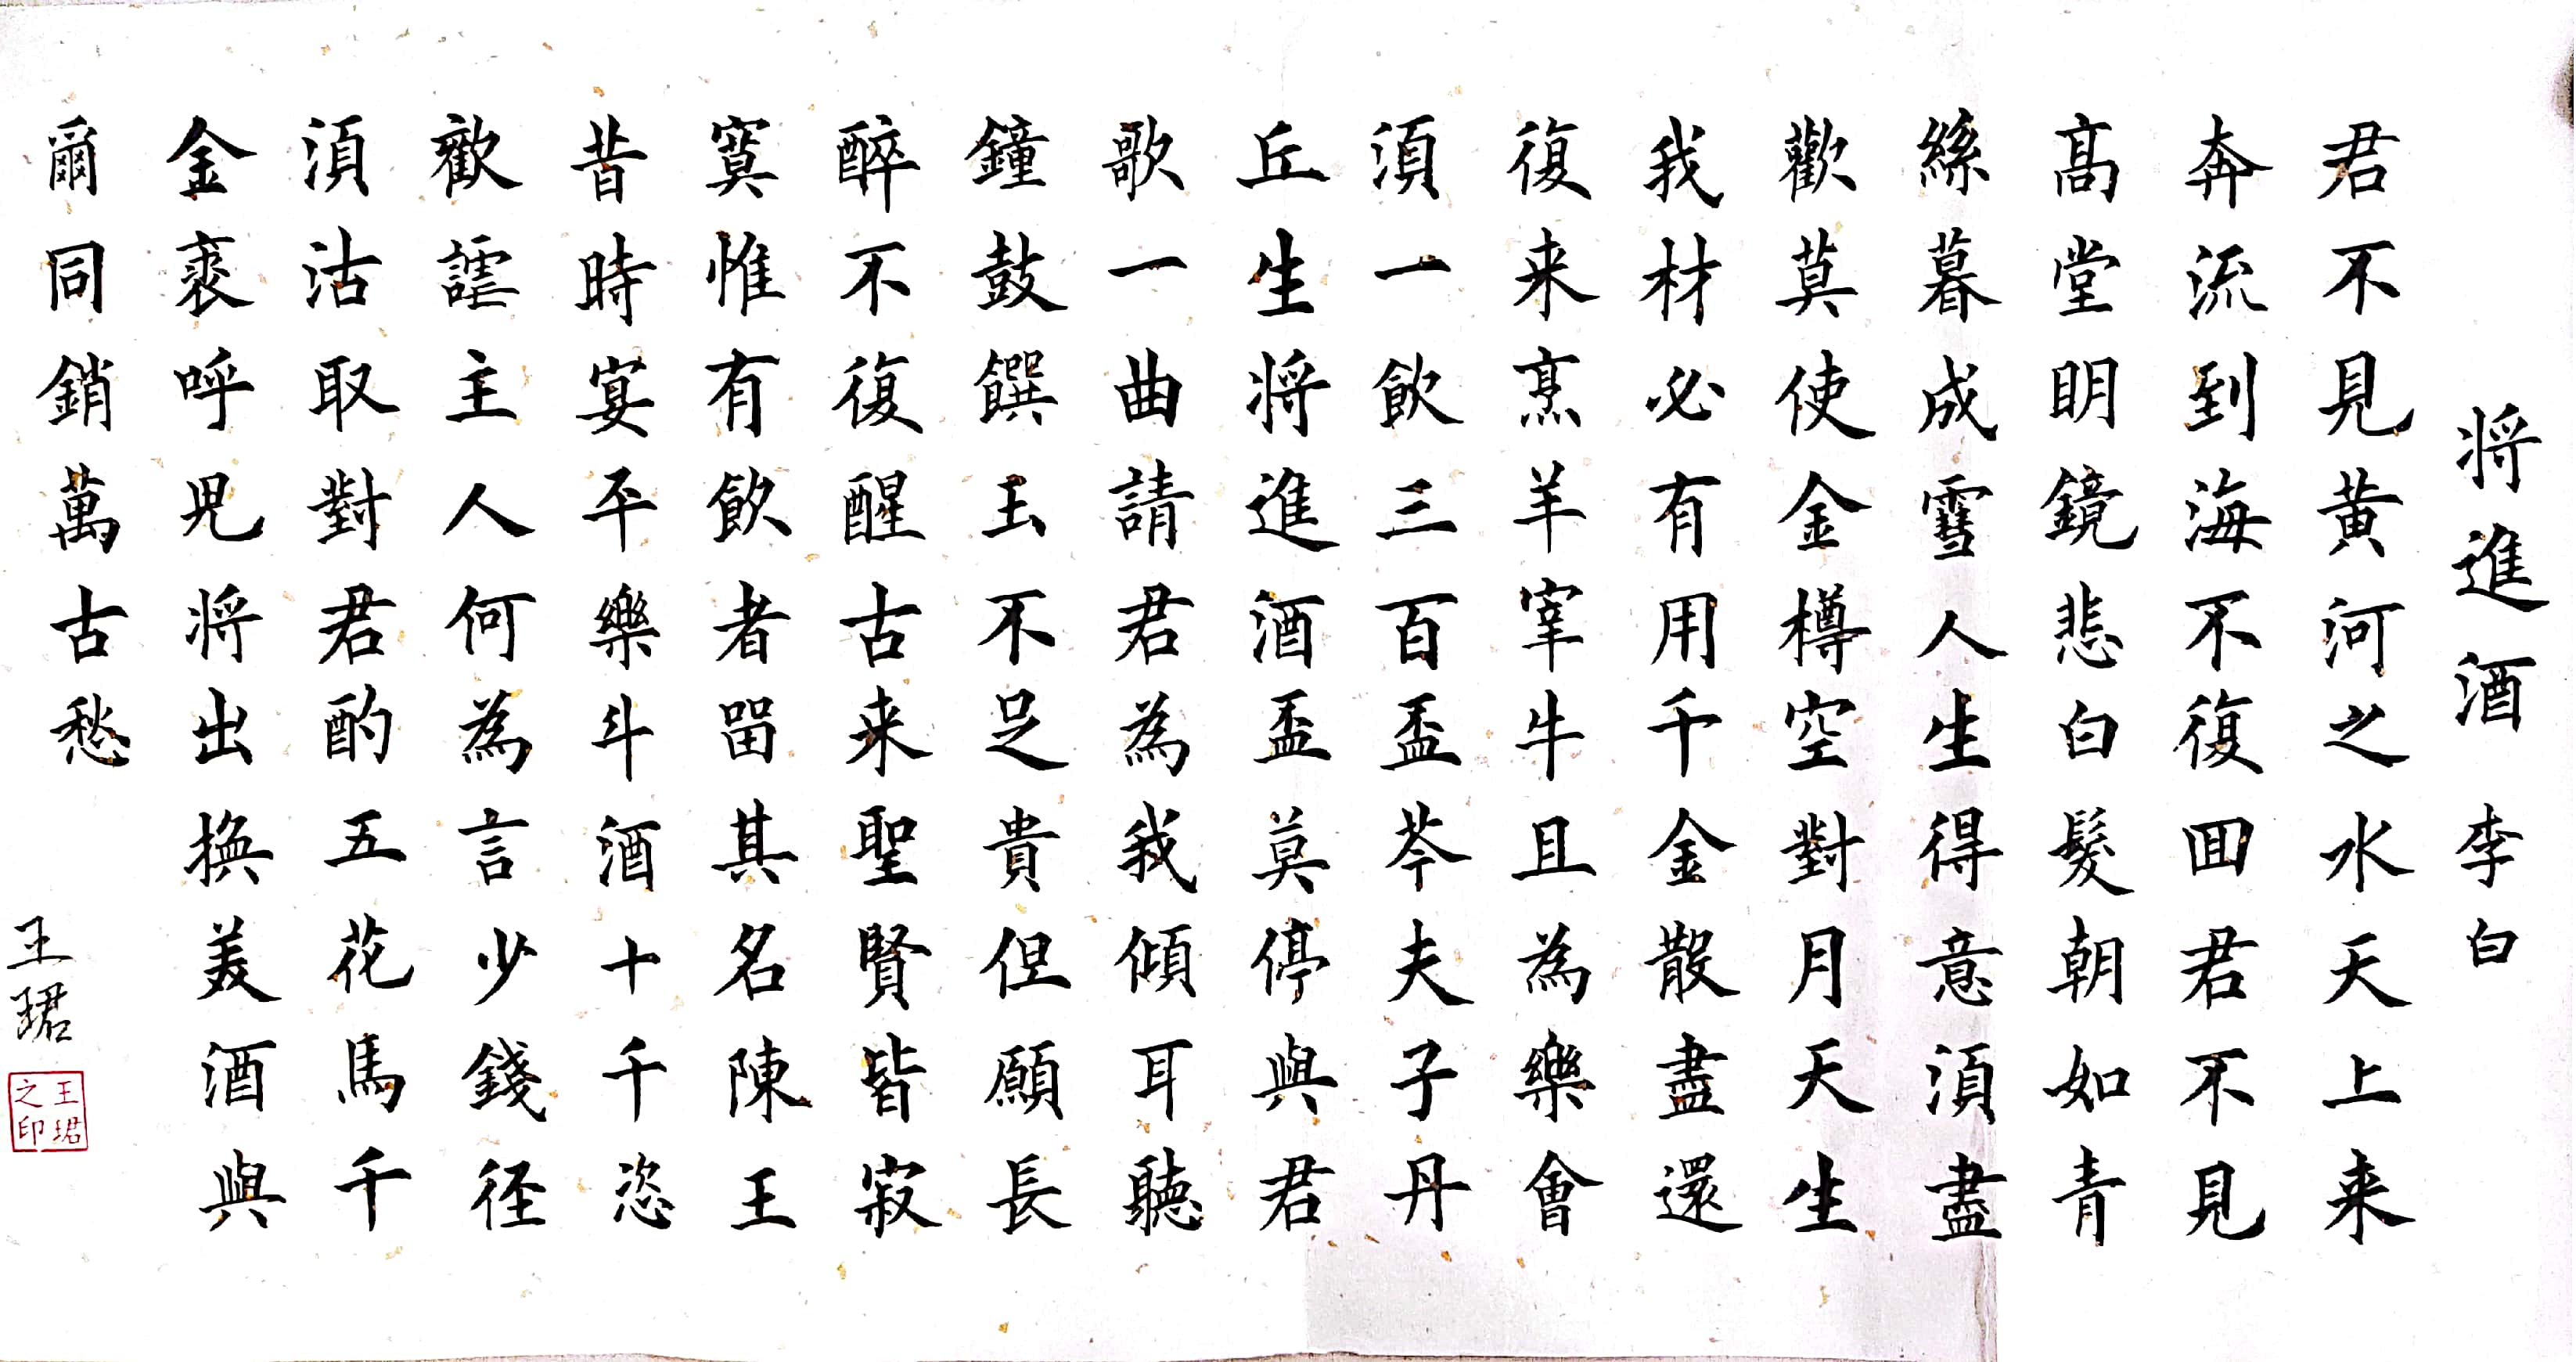 將進酒 李白
君不見黄河之水天上来
奔流到海不復回君不見
髙堂明鏡悲白髮朝如青
絲暮成雪人生得意須盡
歡莫使金樽空對月天生
我材必有用千金散盡還
復来烹羊宰牛且為樂會
須一飲三百盃岑夫子丹
丘生將進酒盃莫停與君
歌一曲請君為我傾耳聽
鐘鼓饌玉不足貴但願長
醉不復醒古来聖賢皆寂
寞惟有飲者留其名陳王
昔時宴平樂斗酒十千恣
歡謔主人何為言少錢径
須沽取對君酌五花馬千
金裘呼兒將出換美酒與
爾同銷萬古愁
王珺
王珺之印